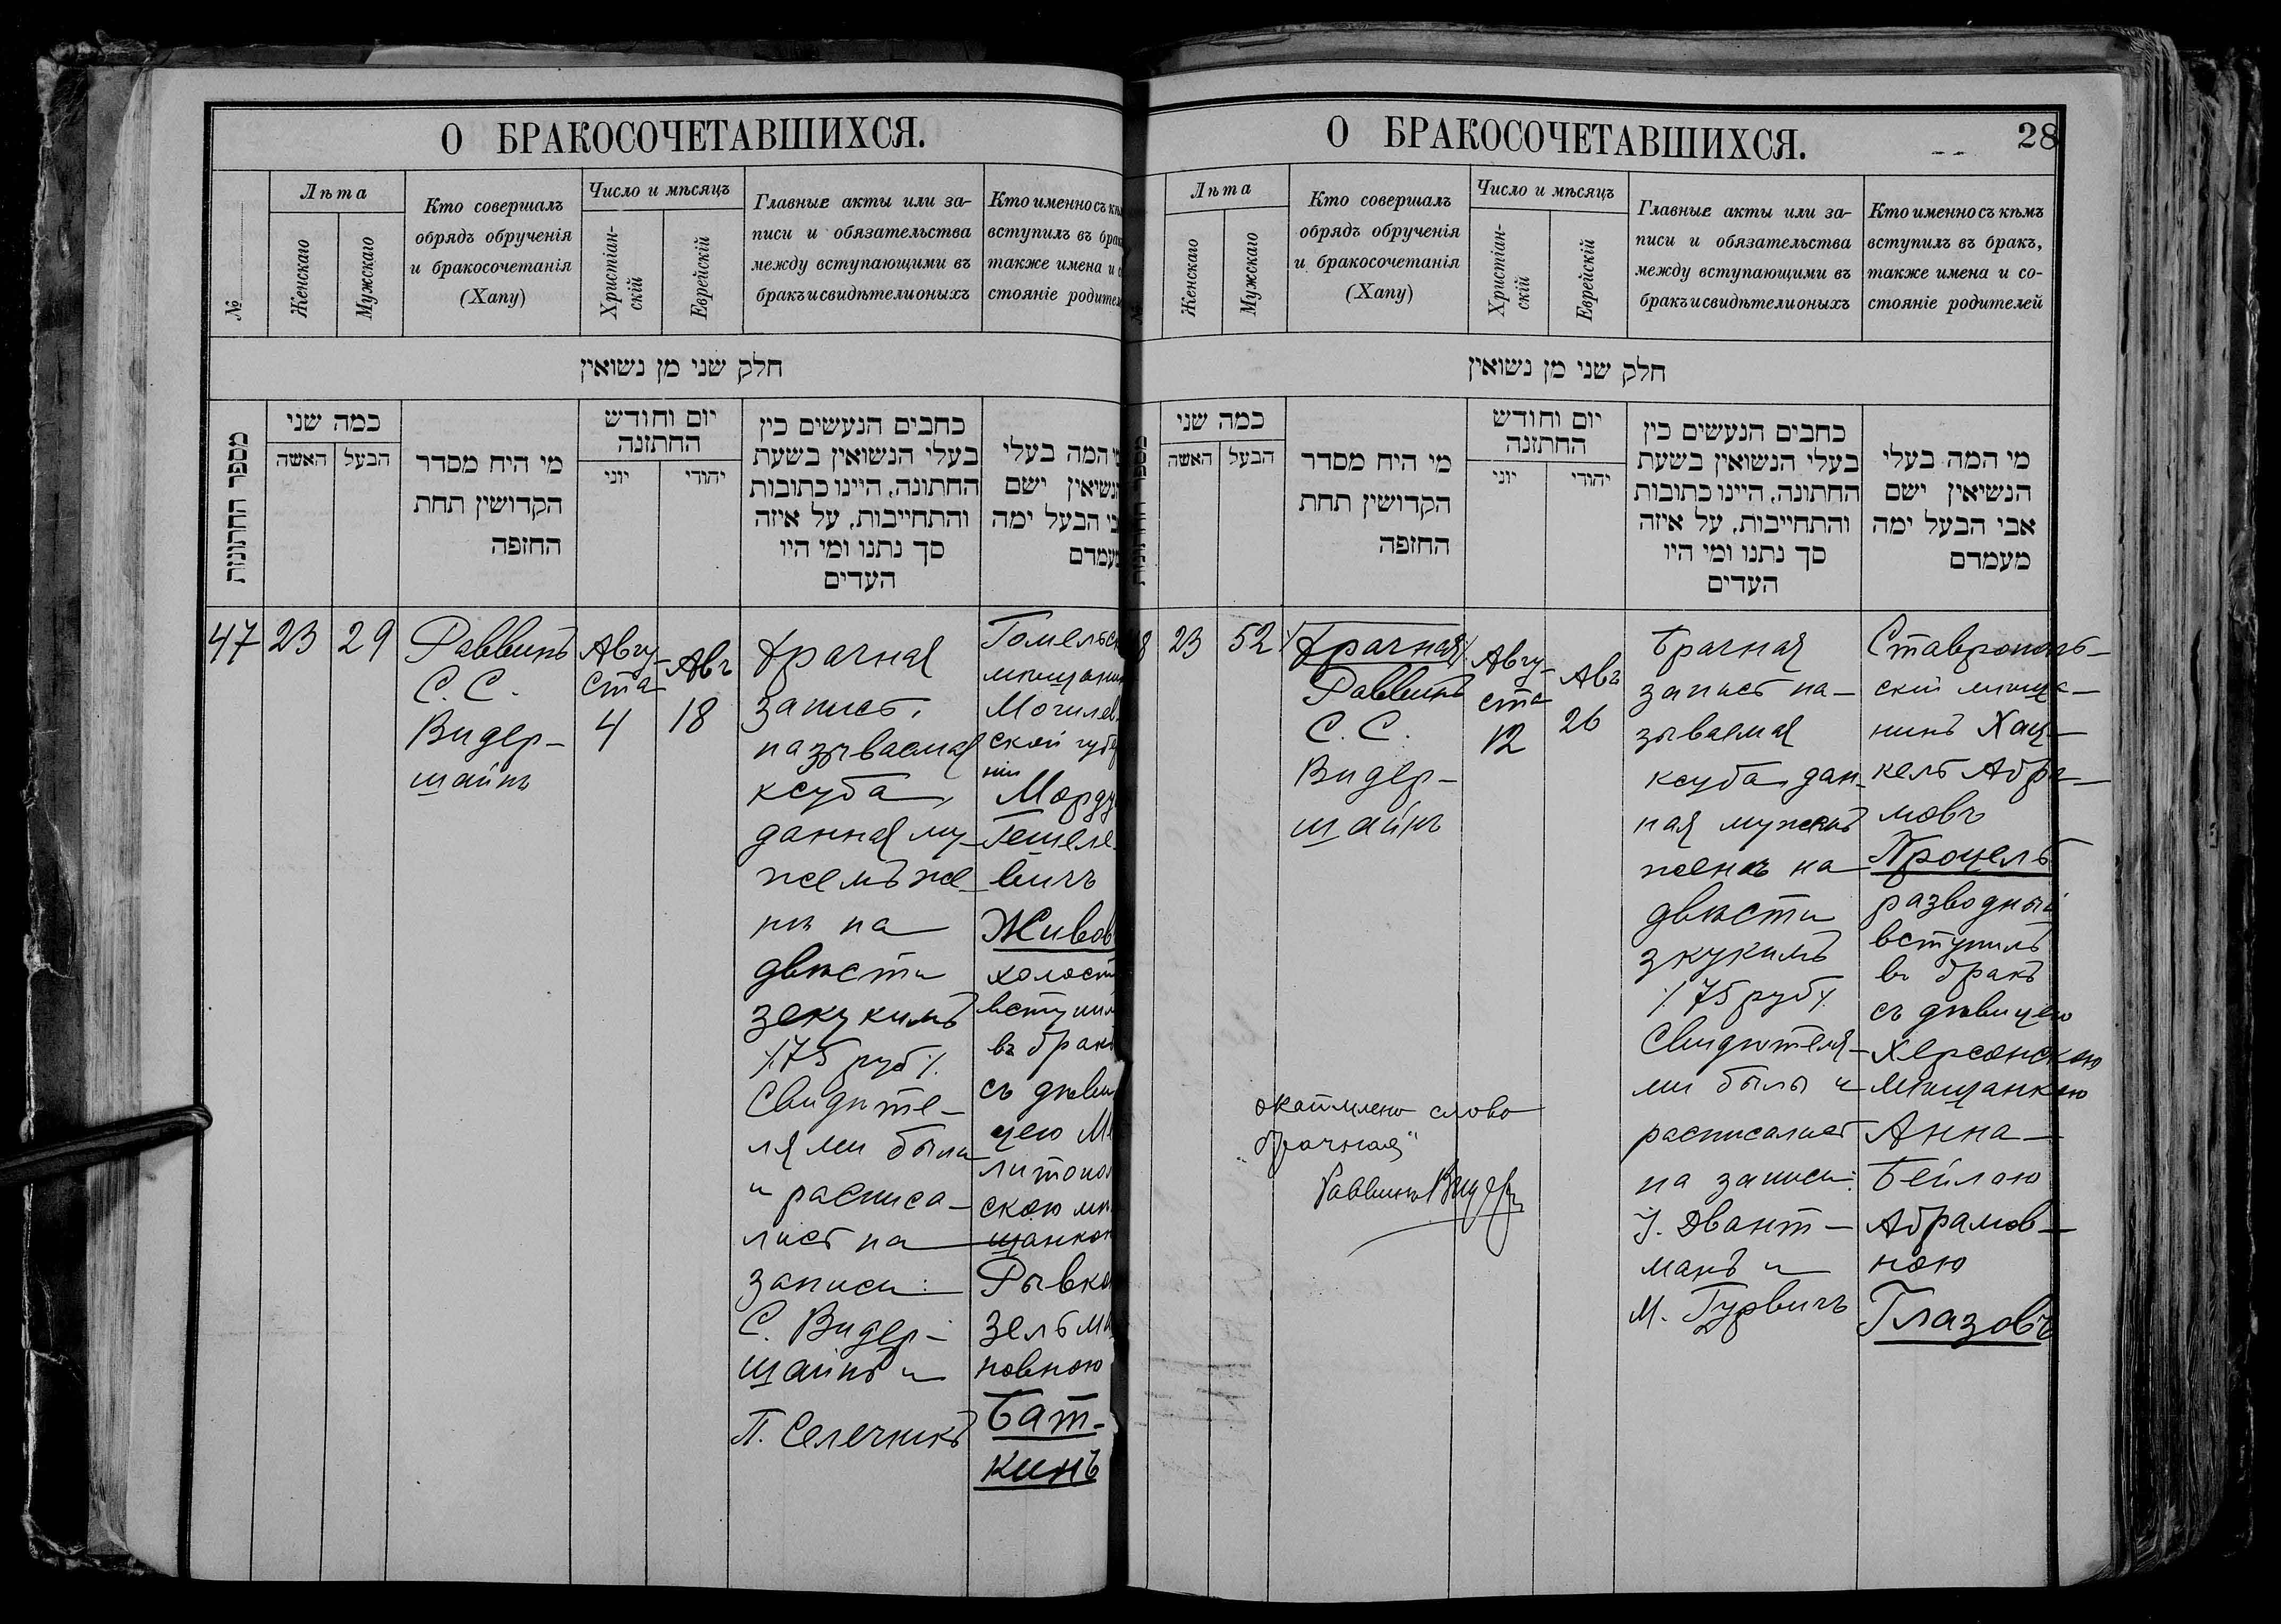 О БРАКОСОЧЕТАВШИХСЯ.
№
Лѣта
Женскаго
Мужскаго
Кто совершалъ
обрядъ обрученія
и бракосочетанія
(Хапу)
Число и мѣсяцъ
Христіан-
скій
Еврейскій
Главные акты или за-
писи и обязательства
между вступающими въ
бракъ и свидѣтели оныхъ
Кто именно съ
вступилъ въ
также имена и
стояніе
חלק שני מן נשואין
מספר החתונות
כמה שני
האשה
הבעל
מי היח מסדר
הקדושין תחת
החופה
יום וחודש
החתונה
יוני
יהודי
כחבים הנעשים כין
בעלי הנשואין בשעת
החתונה, היינו כתובות
והתחייבות, על איזה
סך נתנו ומי היו
העדים
המה בעלי
ישם
הבעל ימה
47
23
29
Раввинъ
С. С.
Видер-
шайнъ
Авгу-
ста
4
Авъ
18
Брачная
запись,
называемая
ксуба,
данная му-
жемъ же-
нѣ на
двѣсти
зекукимъ
/:75 руб:/.
Свидѣте-
лями были
и расписа-
лись на
записи:
С. Видер-
шайнъ и
П. Селечникъ
Гомельс
мѣщанин
Могилев
ской губер
ніи
Морду
Гешеле-
вичъ
Живов
холост
вступил
въ бракъ
съ дѣви
цею Ме
литопол
скою мѣ
щанкою
Рывкою
Зельма
новною
Бат-
кинъ
О БРАКОСОЧЕТАВШИХСЯ.
28
Лѣта
Женскаго
Мужскаго
Кто совершалъ
обрядъ обрученія
и бракосочетанія
(Хапу)
Число и мѣсяцъ
Христіан-
скій
Еврейскій
Главные акты или за-
писи и обязательства
между вступающими въ
бракъ и свидѣтели оныхъ
Кто именно съ кѣмъ
вступилъ въ бракъ,
также имена и со-
стояніе родителей
חלק שני מן נשואין
כמה שני
האשה
הבעל
מי היח מסדר
הקדושין תחת
החופה
יום וחודש
החתונה
יוני
יהודי
כחבים הנעשים כין
בעלי הנשואין בשעת
החתונה, היינו כתובות
והתחייבות, על איזה
סך נתנו ומי היו
העדים
מי המה בעלי
הנשיאין ישם
אבי הבעל ימה
מעמדם
8
23
52
/:Брачная:/
Раввинъ
С. С.
Видер-
шайнъ
Авгу-
ста
12
Авъ
26
Брачная
запись на-
зываемая
ксуба, дан-
ная мужемъ
женѣ на
двѣсти
зкукимъ
/:75 руб:/.
Свидѣтеля-
ми были и
расписались
на записи:
І. Двант-
манъ и
М. Гурвичъ
Ставрополь-
скій мѣща-
нинъ Хац-
кель Абра-
мовъ
Троцель
разводный
вступилъ
въ бракъ
съ дѣвицею
Херсонскою
мѣщанкою
Анна-
Бейлою
Абрамов-
ною
Глазовъ
слово
„брачная"
Раввинъ Видер